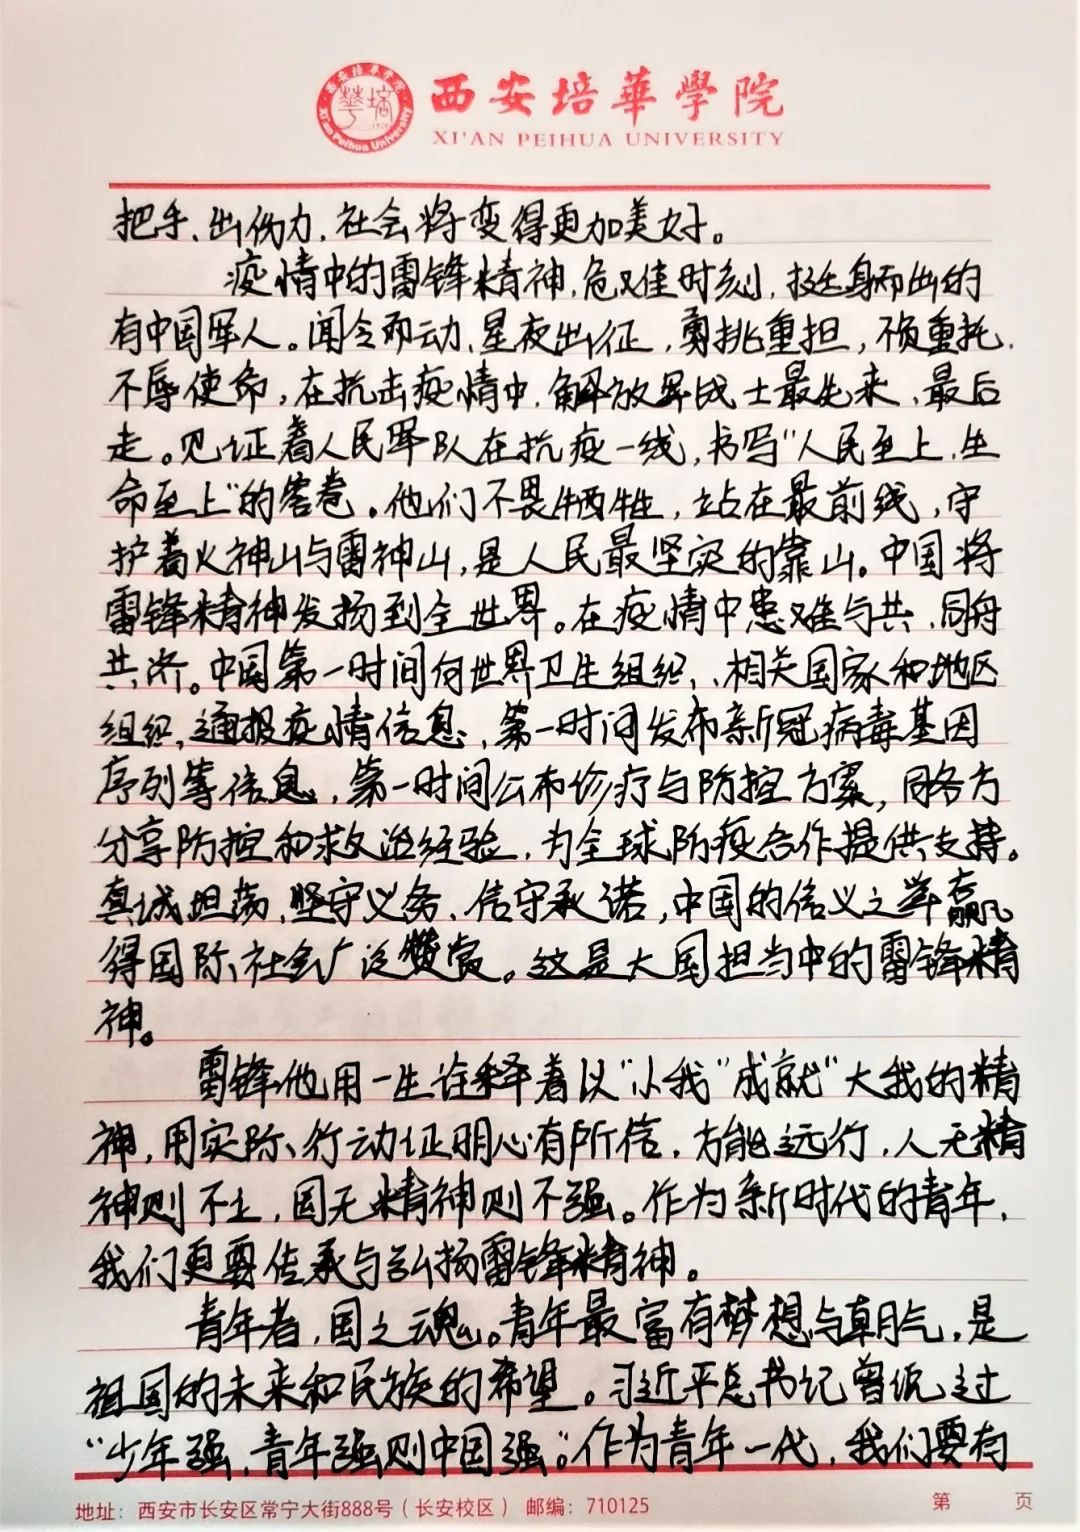 西安培華學院
XI'AN PEIHUA UNIVERSITY
把手、出份力，社会将变得更加美好。
疫情中的雷锋精神，危难时刻，挺身而出的
有中国军人。闻令而动，星夜出征，勇挑重担，不负重托，
不辱使命，在抗击疫情中，解放军战士最先来，最后
走。见证着人民军队在抗疫一线，书写“人民至上，生
命至上”的答卷。他们不畏牺牲，站在最前线，守
护着火神山与雷神山，是人民最坚实的靠山。中国将
雷锋精神发扬到全世界。在疫情中患难与共，同舟
共济。中国第一时间向世界卫生组织，、相关国家和地区
组织，通报疫情信息，第一时间发布新冠病毒基因
序列等信息，第一时间公布诊疗与防控方案，同各方
分享防控和救治经验，为全球防疫合作提供支持。
真诚坦荡，坚守义务、信守承诺，中国的信义之举赢
得国际社会广泛赞赏。这是大国担当中的雷锋精
神。
雷锋他用一生诠释着以“小我”成就“大我的精
神，用实际行动证明心有所信，方能远行，人无精
神则不立，国无精神则不强。作为新时代的青年，
我们更要传承与弘扬雷锋精神。
青年者，国之魂。青年最富有梦想与朝气，是
祖国的未来和民族的希望。习近平总书记曾说过
“少年强，青年强则中国强。”作为青年一代，我们要有
地址：西安市长安区常宁大街888号（长安校区） 邮编：710125
第 页